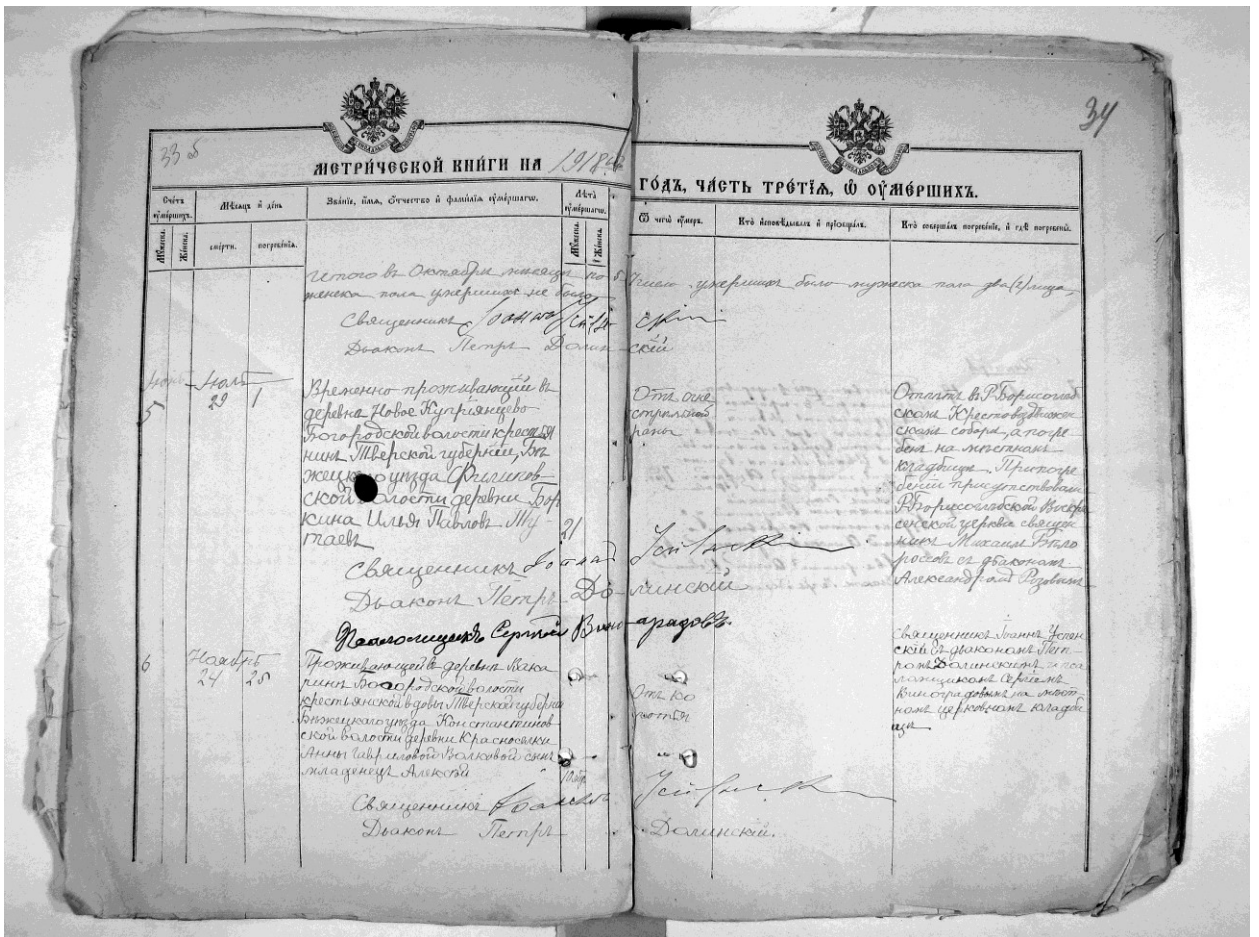 33 об
34
МЕТРИ́ЧЕСКОЙ КНИ́ГИ НА 1918
ГО́ДЪ, ЧА́СТЬ ТРЕ́ТІѦ, Ѡ ОУ҆МЕ́РШИХЪ.
Счетъ оумершихъ.
Мѣсяцъ и день
Званіе, имя, отчество и фамилія оумершаго.
Лѣта оумершаго.
Ѿ чего оумеръ.
Кто исповѣдывалъ и пріобщалъ.
Кто совершалъ погребеніе, и гдѣ погребены.
Мужеска.
Женска.
смерти.
погребенія.
Мужеска.
Женска.
въ Октябрѣ мѣсяцѣ число умершихъ было мужеска пола два (2) лица,
женска пола умершихъ не было
Священникъ Іоаннъ Успенскій
Дьяконъ Петръ Долинскій
5
29
1
Временно проживающій въ
деревнѣ Новое Куприянцево
Богородской волости крестья
нинъ Тверской губерніи, Бѣ
жецкаго уѣзда
ской волости деревни Бор
кина Илья Павловъ Му
таевъ
21
Отъ огне
стрѣльной
раны
Отпѣтъ въ Р. Борисоглѣб
скомъ Крестовоздвижен
скомъ соборѣ, а погре
бенъ на мѣстномъ
кладбищѣ. При погре
беніи присутствовали
Р. Борисоглѣбской Воскре
сенской церкви священ
никъ Михаилъ Бѣло
россовъ съ дьакономъ
Александромъ Розовымъ
Священникъ Іоаннъ Успенскій
Дьаконъ Петръ Долинскій
Псаломщикъ Сергѣй Виноградовъ.
6
Ноябрь
24
25
Проживающей въ деревнѣ Вака
ринѣ Богородской волости
крестьянской вдовы Тверской губерніи
Бѣжецкаго уѣзда Константинов
ской волости деревни Красноселки
Анны Гавриловой Волковой сынъ
младенецъ Алексѣй
Священникъ Іоаннъ Успен
скій съ дьакономъ Пет
ромъ Долинскимъ и пса
ломщикомъ Сергіемъ
Виноградовымъ на мѣст
номъ церковномъ кладби
щѣ
Священникъ Іоаннъ Успенскій
Дьаконъ Петръ Долинскій.